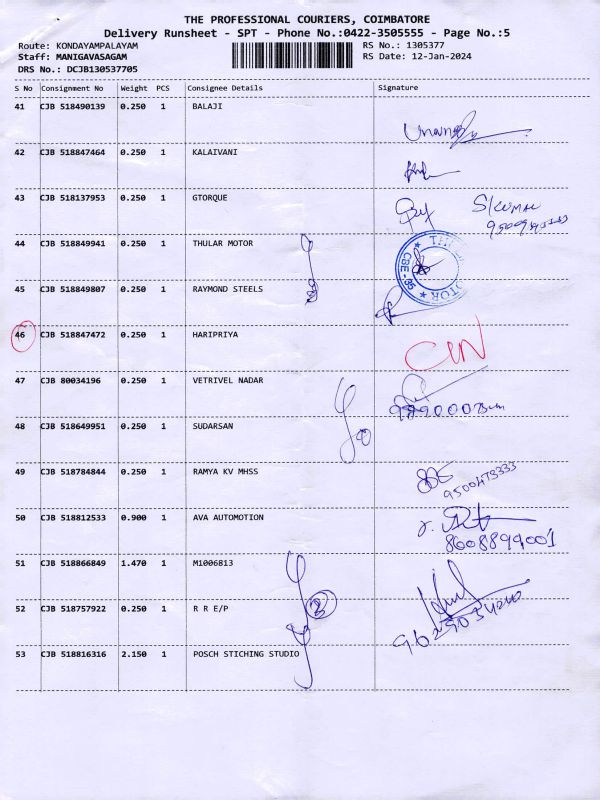 THE PROFESSIONAL COURIERS, COIMBATORE
Delivery Runsheet - SPT - Phone No.:0422-3505555 - Page No.:5
Route: KONDAYAMPALAYAM RS No.: 1305377
Staff: MANIGAVASAGAM RS Date: 12-Jan-2024
DRS No.: DCJB130537705
S No Consignment No Weight PCS Consignee Details Signature
41 CJB 518490139 0.250 1 BALAJI
42 CJB 518847464 0.250 1 KALAIVANI
43 CJB 518137953 0.250 1 GTORQUE
44 CJB 518849941 0.250 1 THULAR MOTOR
CBE-35
45 CJB 518849807 0.250 1 RAYMOND STEELS
46 CJB 518847472 0.250 1 HARIPRIYA
47 CJB 80034196 0.250 1 VETRIVEL NADAR
48 CJB 518649951 0.250 1 SUDARSAN
49 CJB 518784844 0.250 1 RAMYA KV MHSS
50 CJB 518812533 0.900 1 AVA AUTOMOTION
8608899001
51 CJB 518866849 1.470 1 M1006813
52 CJB 518757922 0.250 1 R R E/P
53 CJB 518816316 2.150 1 POSCH STICHING STUDIO